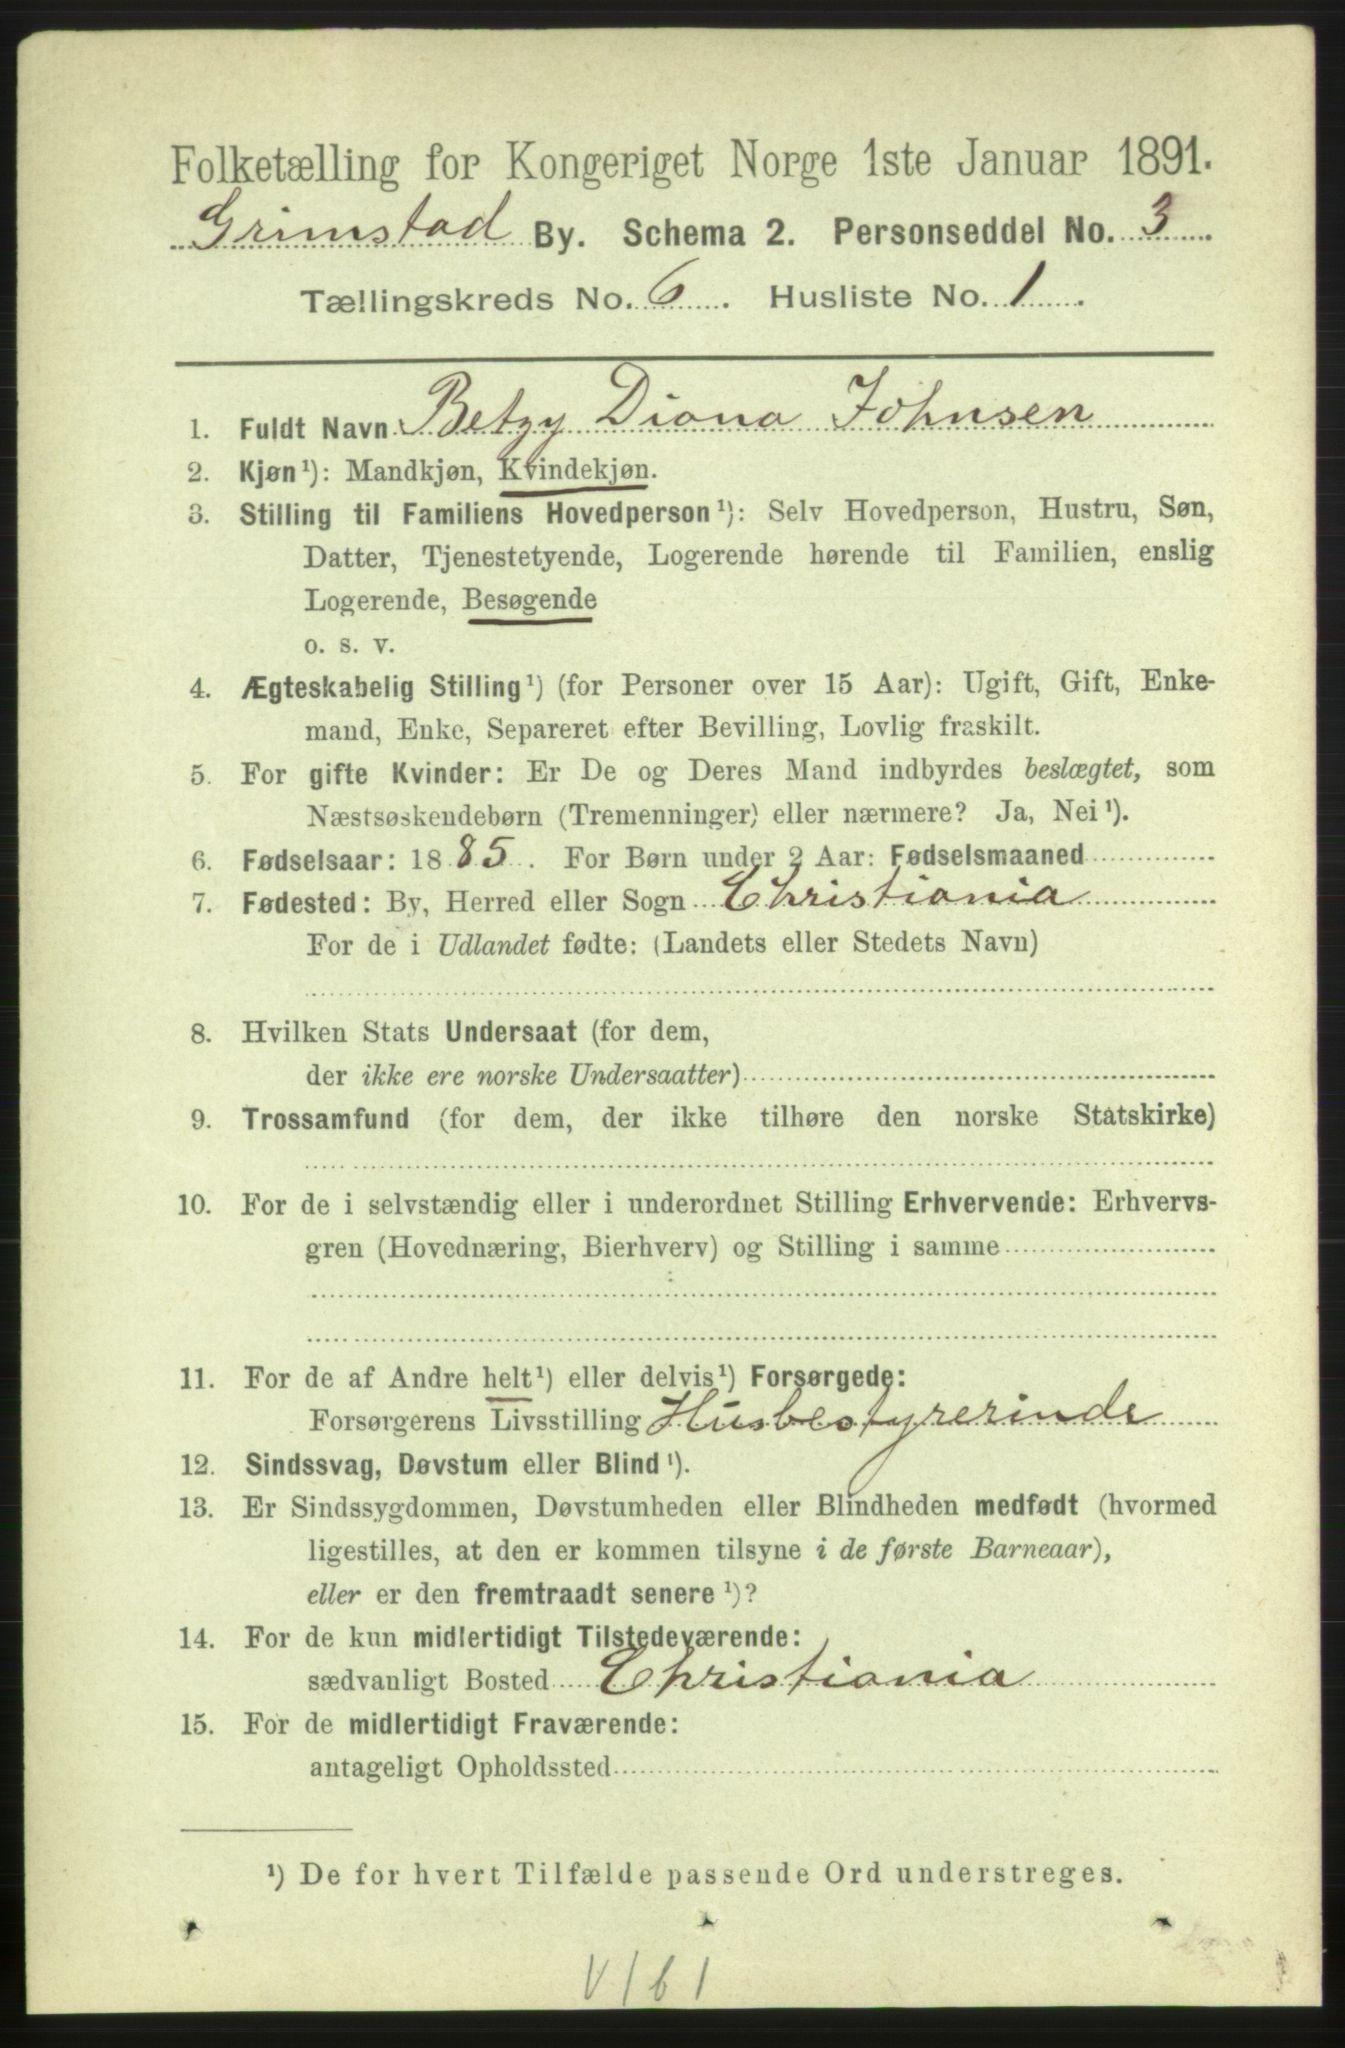 Folketælling for Kongeriget Norge 1ste Januar 1891.
Grimstad By. Schema 2. Personseddel No. 3
Tællingskreds No. 6. Husliste No. 1.
1. Fuldt Navn Betzy Diana Johnsen
2. Kjøn¹): Mandkjøn, Kvindekjøn.
3. Stilling til Familiens Hovedperson¹): Selv Hovedperson, Hustru, Søn,
Datter, Tjenestetyende, Logerende hørende til Familien, enslig
Logerende, Besøgende
o. s. v.
4. Ægteskabelig Stilling¹) (for Personer over 15 Aar): Ugift, Gift, Enke-
mand, Enke, Separeret efter Bevilling, Lovlig fraskilt.
5. For gifte Kvinder: Er De og Deres Mand indbyrdes beslægtet, som
Næstsøskendebørn (Tremenninger) eller nærmere? Ja, Nei¹).
6. Fødselsaar: 1885. For Børn under 2 Aar: Fødselsmaaned
7. Fødested: By, Herred eller Sogn Christiania
For de i Udlandet fødte: (Landets eller Stedets Navn)
8. Hvilken Stats Undersaat (for dem,
der ikke ere norske Undersaatter)
9. Trossamfund (for dem, der ikke tilhøre den norske Statskirke)
10. For de i selvstændig eller i underordnet Stilling Erhvervende: Erhvervs-
gren (Hovednæring, Bierhverv) og Stilling i samme
11. For de af Andre helt¹) eller delvis¹) Forsørgede:
Forsørgerens Livsstilling Husbestyrerinde
12. Sindssvag, Døvstum eller Blind¹).
13. Er Sindssygdommen, Døvstumheden eller Blindheden medfødt (hvormed
ligestilles, at den er kommen tilsyne i de første Barneaar),
eller er den fremtraadt senere¹)?
14. For de kun midlertidigt Tilstedeværende:
sædvanligt Bosted Christiania
15. For de midlertidigt Fraværende:
antageligt Opholdssted
¹) De for hvert Tilfælde passende Ord understreges.
V161